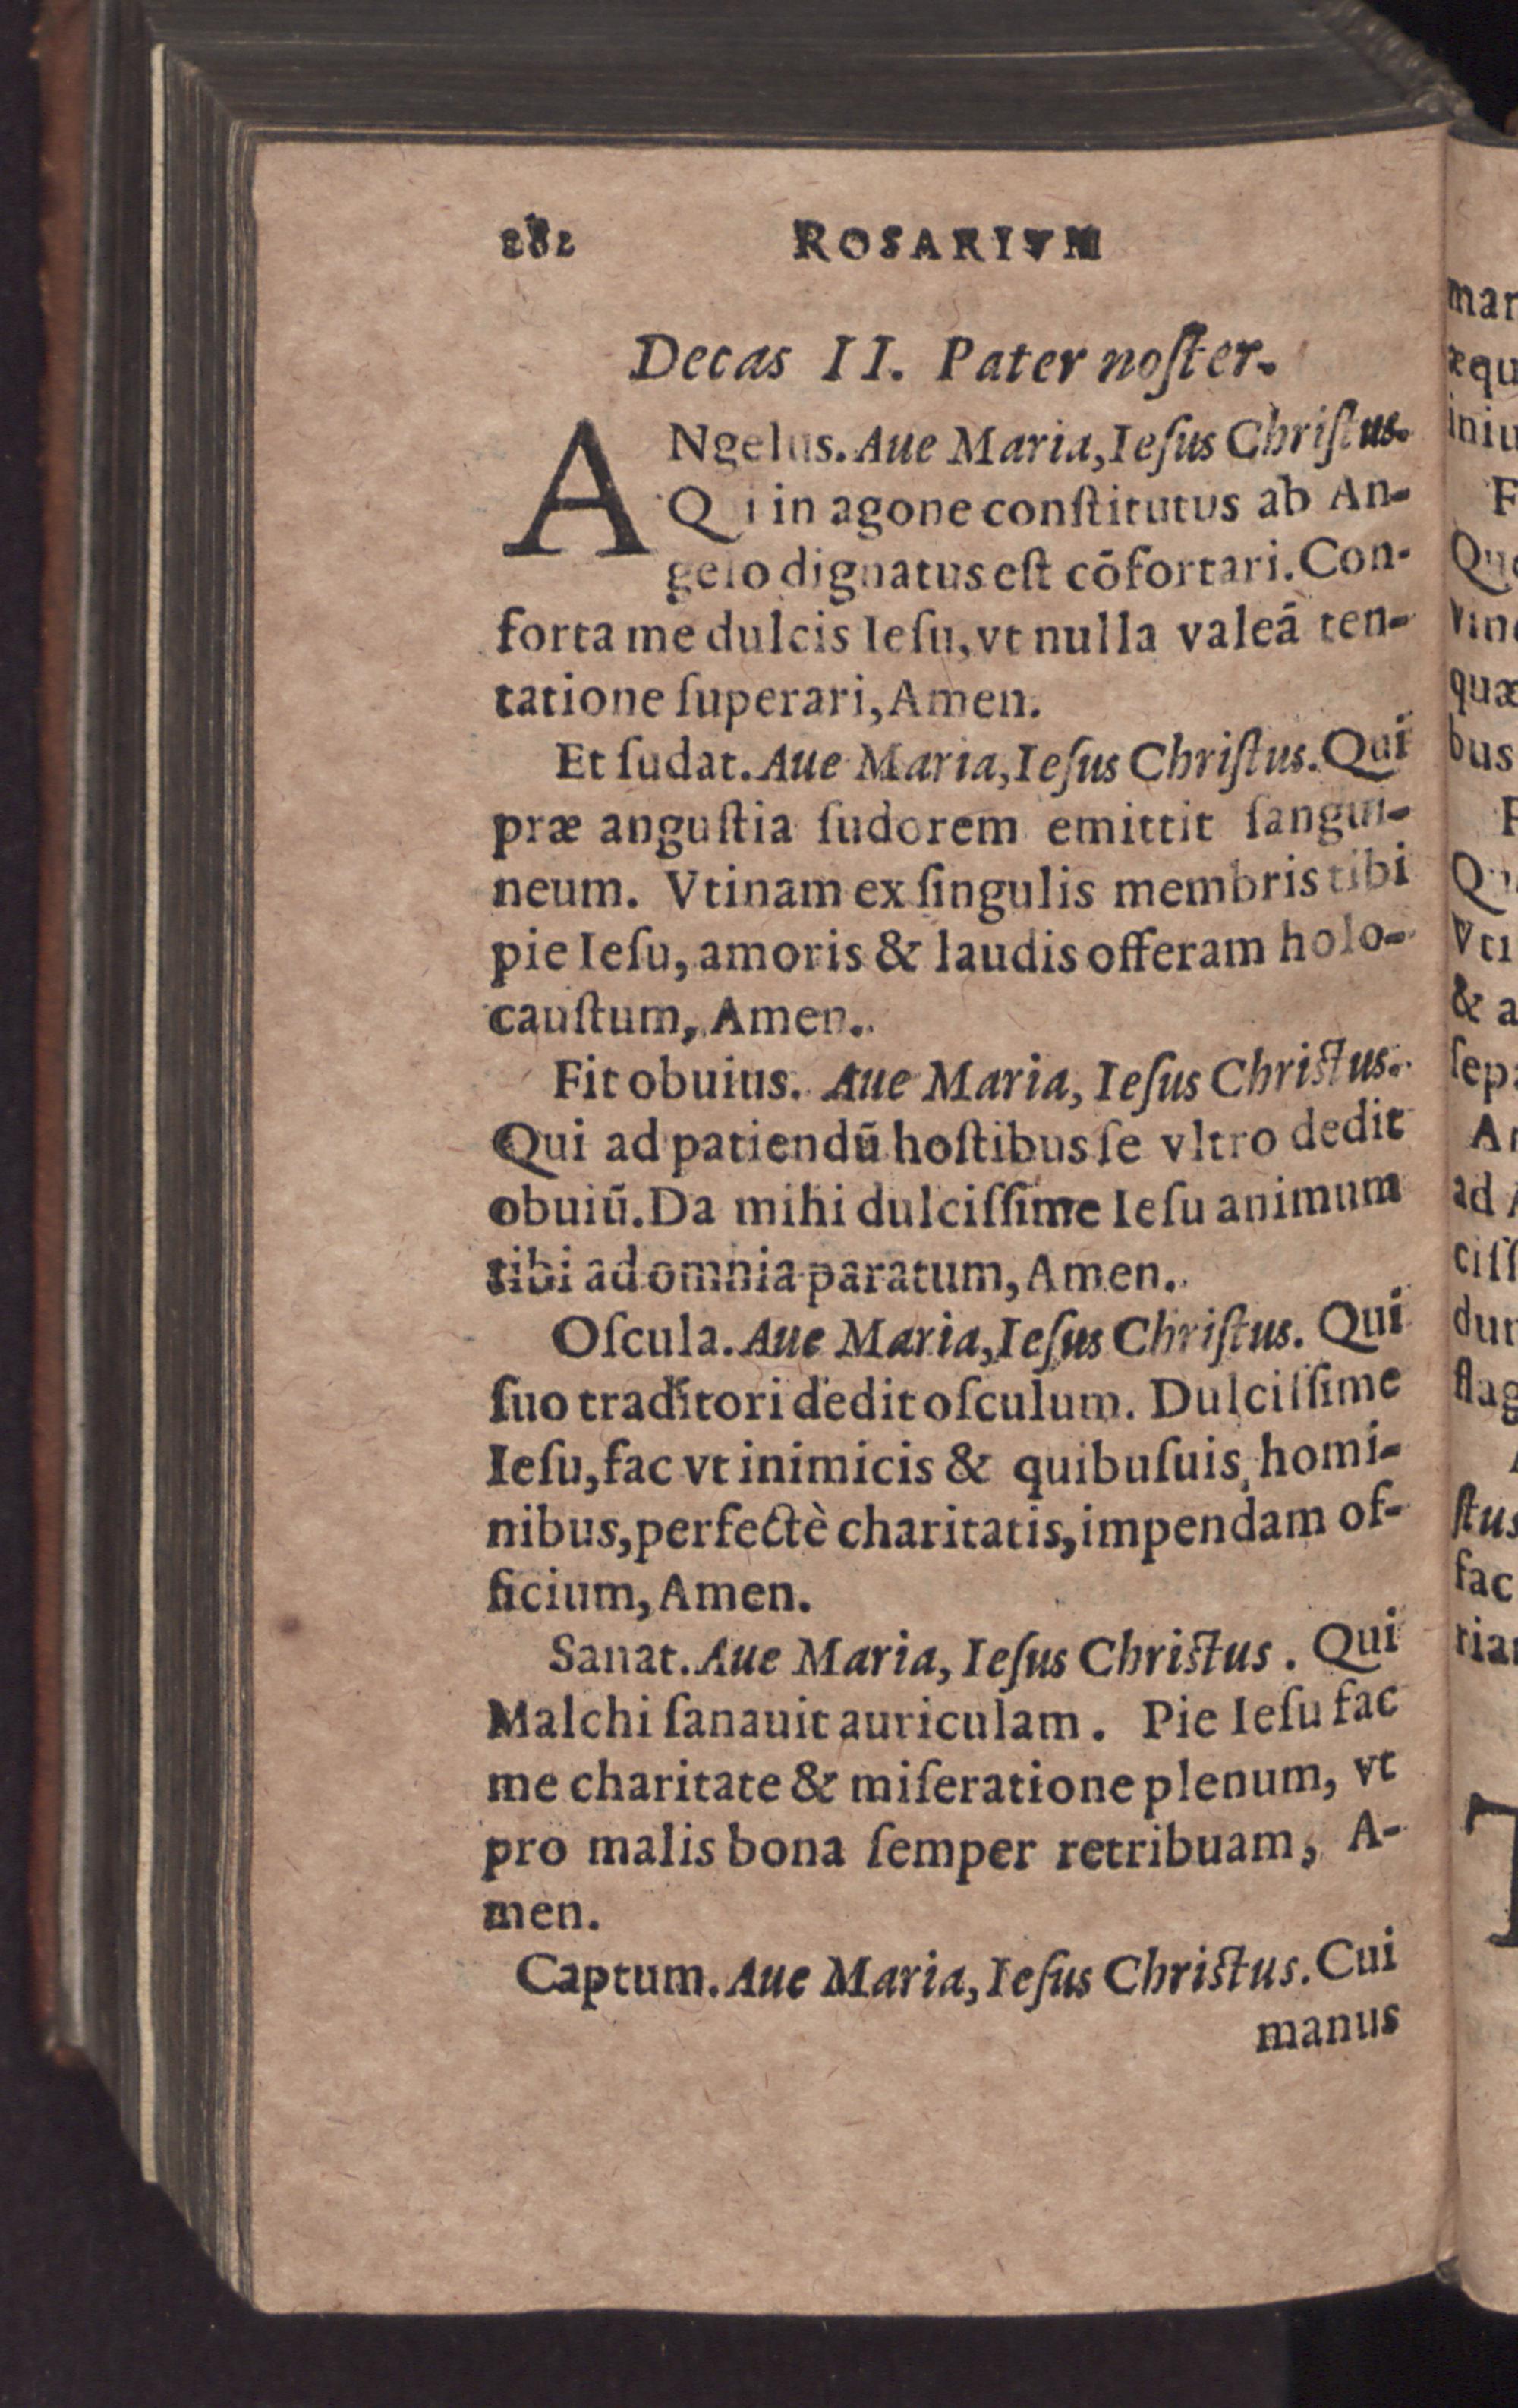 282 ROSARIVM
Decas II. Pater noſter.
ANgelus. Aue Maria, Ieſus Chriſtus.
Qui in agone conſtitutus ab An-
gelo dignatus eſt cõfortari. Con-
forta me dulcis Ieſu, vt nulla valeã ten-
tatione ſuperari, Amen.
Et ſudat. Aue Maria, Ieſus Chriſtus. Qui
præ anguſtia ſudorem emittit ſangui-
neum. Vtinam ex ſingulis membris tibi
pie Ieſu, amoris & laudis offeram holo-
cauſtum, Amen.
Fit obuius. Aue Maria, Ieſus Chriſtus.
Qui ad patiendũ hoſtibus ſe vltro dedit
obuiũ. Da mihi dulciſſime Ieſu animum
tibi ad omnia paratum, Amen.
Oſcula. Aue Maria, Ieſus Chriſtus. Qui
ſuo traditori dedit oſculum. Dulciſſime
Ieſu, fac vt inimicis & quibuſuis homi-
nibus, perfectè charitatis, impendam of-
ficium, Amen.
Sanat. Aue Maria, Ieſus Chriſtus. Qui
Malchi ſanauit auriculam. Pie Ieſu fac
me charitate & miſeratione plenum, vt
pro malis bona ſemper retribuam, A-
men.
Captum. Aue Maria, Ieſus Chriſtus. Cui
manus